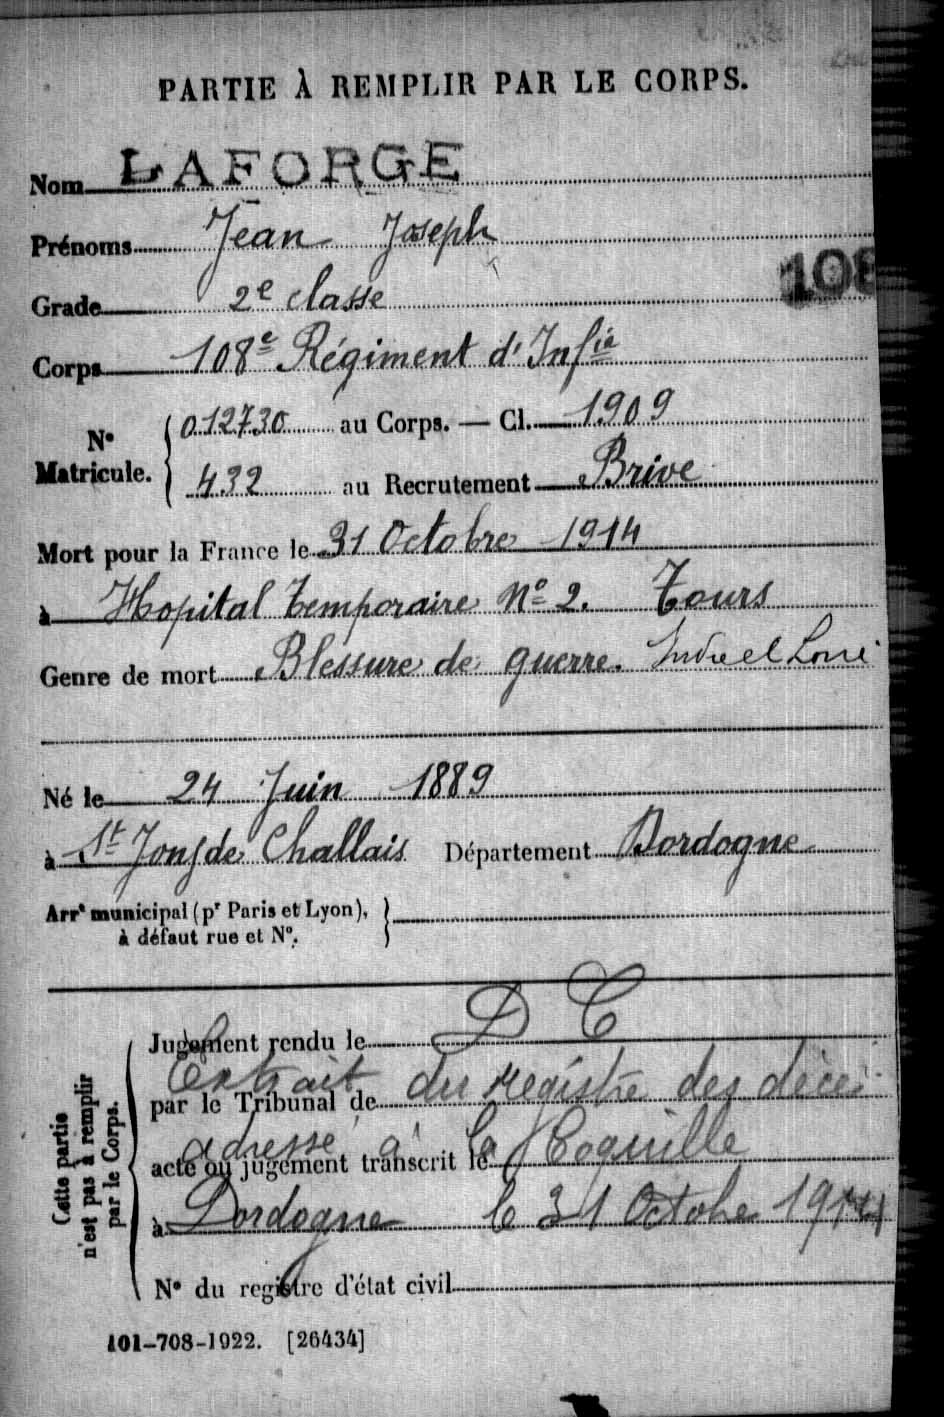 PARTIE À REMPLIR PAR LE CORPS.
Nom LAFORGE
Prénoms Jean Joseph
108
Grade 2e classe
Corps 108e Régiment d'Infie
N° Matricule. 012730 au Corps. — Cl. 1909
432 au Recrutement Brive
Mort pour la France le 31 Octobre 1914
à Hopital temporaire N° 2. Tours
Genre de mort Blessure de guerre. Indre et Loire
Né le 24 Juin 1889
à St Jory de Challais Département Dordogne
Arrt municipal (pr Paris et Lyon),
à défaut rue et N°.
Cette partie n'est pas à remplir par le Corps.
Jugement rendu le D C
Extrait du registre des décès
par le Tribunal de
adressé à la Coquille
acte ou jugement transcrit le
à Dordogne le 31 Octobre 1914
N° du registre d'état civil
101-708-1922. [26434]